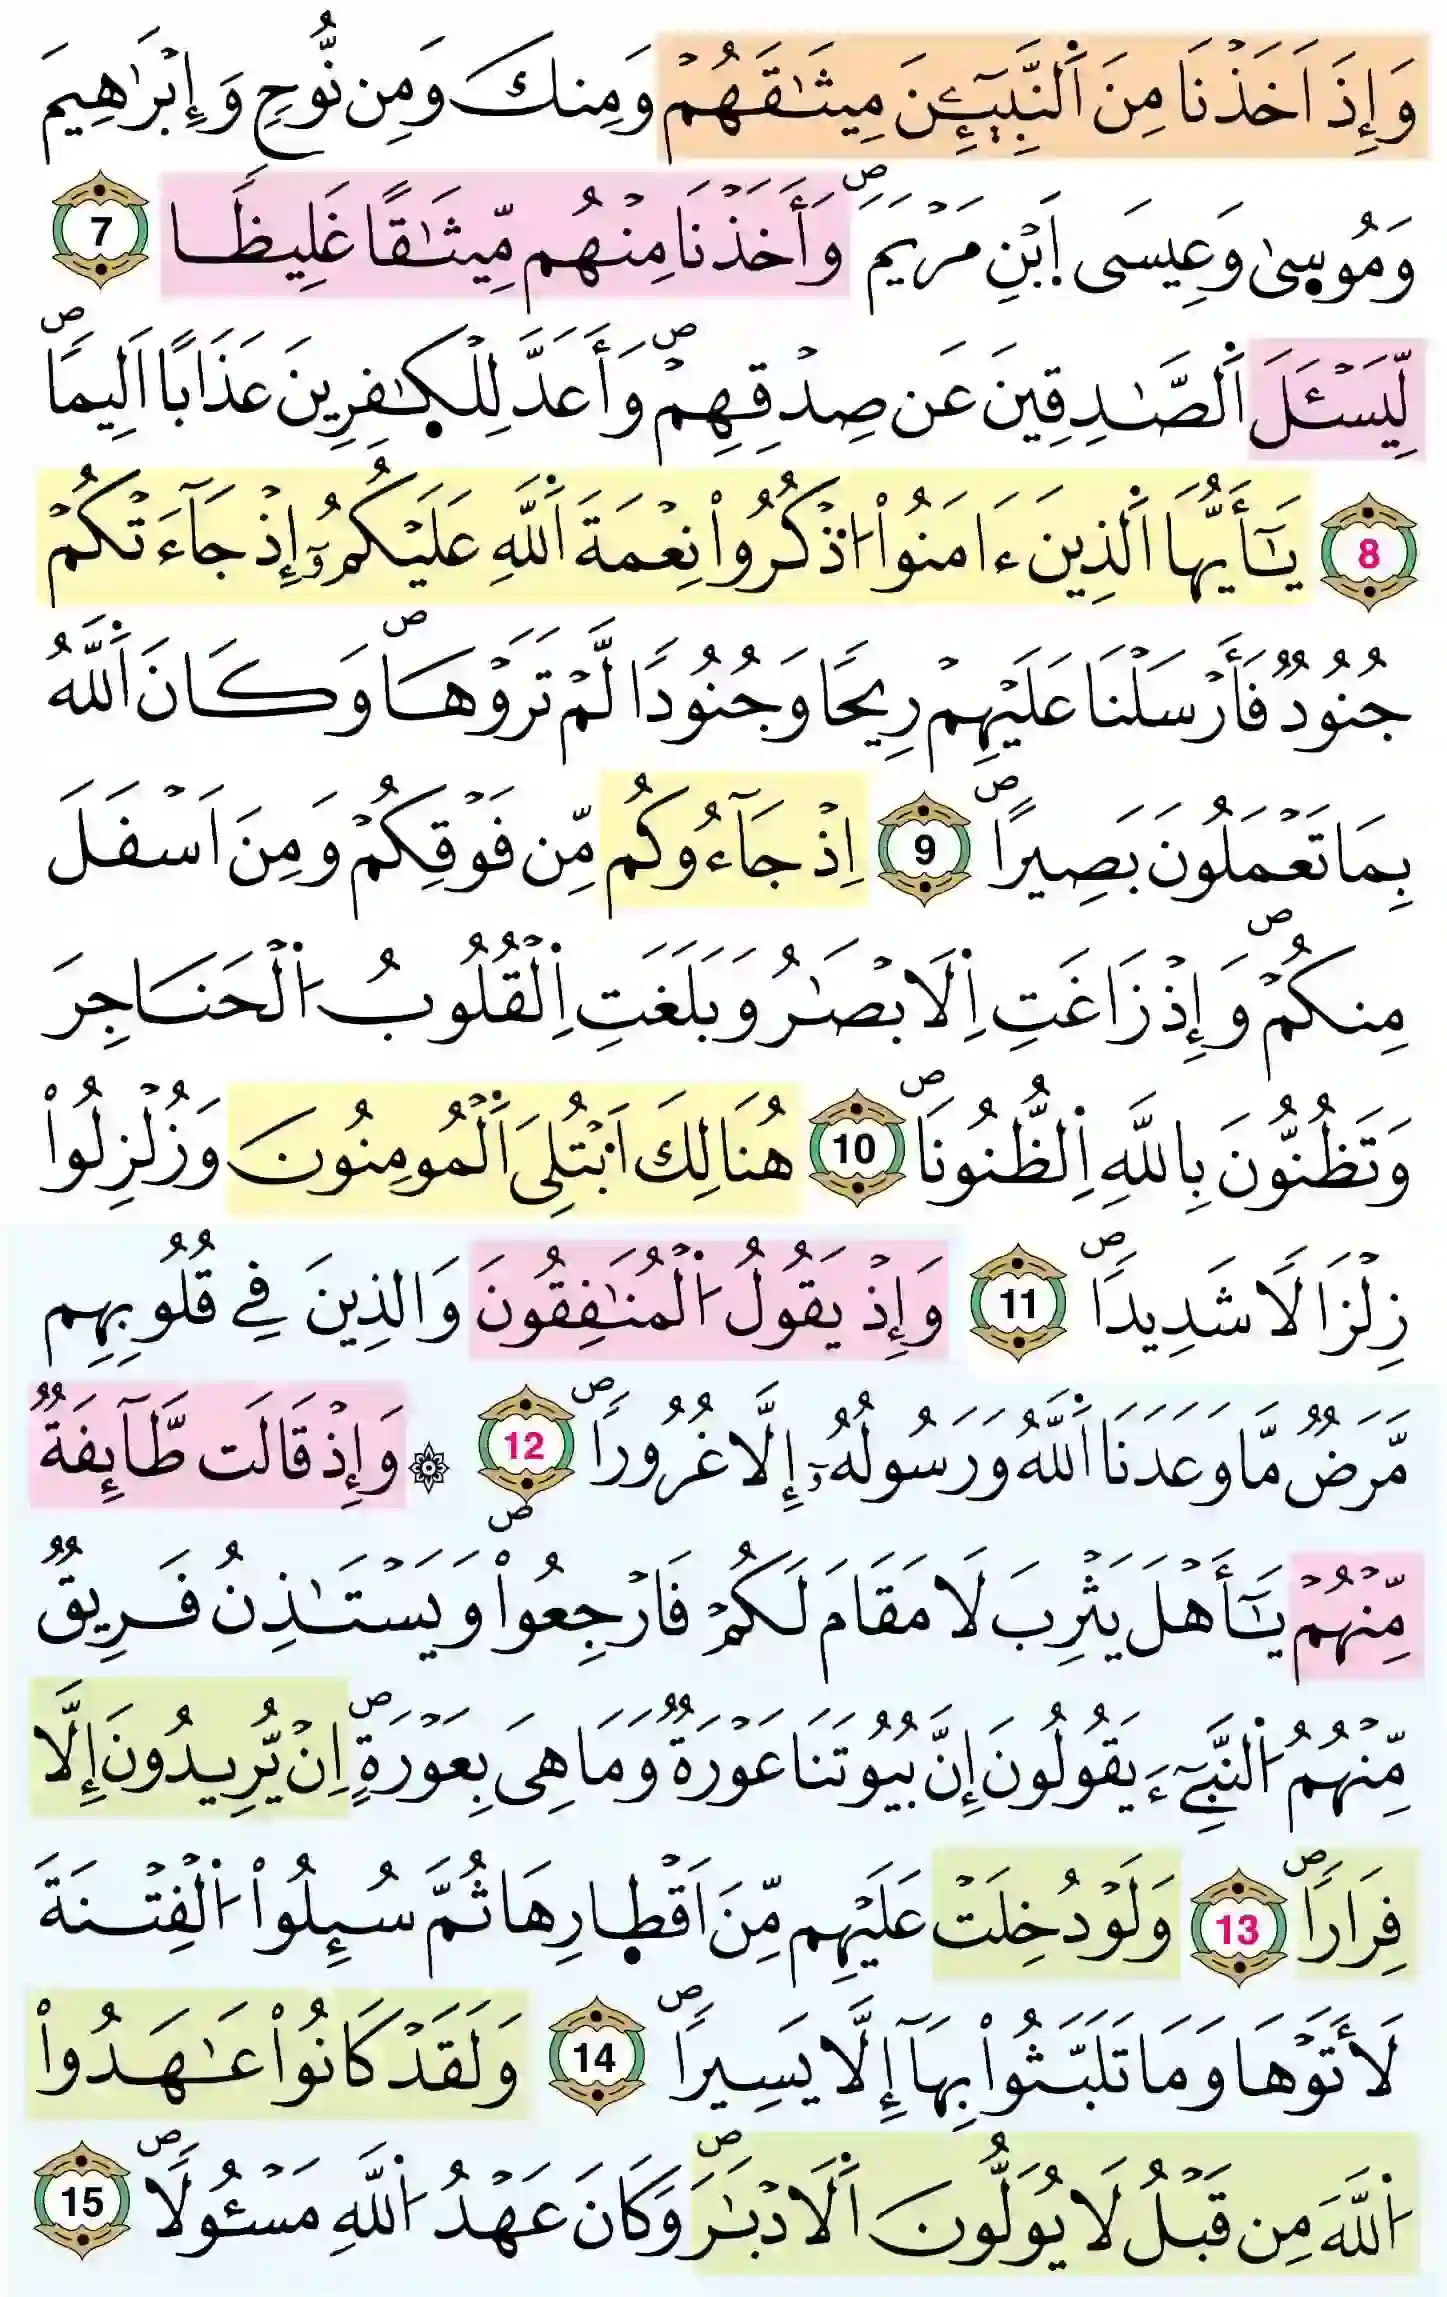 وَإِذَ اَخَذْنَا مِنَ اَ۬لنَّبِيٓـِٕۧنَ مِيثَٰقَهُمْ وَمِنكَ وَمِن نُّوحٖ وَإِبْرَٰهِيمَ
وَمُوس۪يٰ وَعِيسَى اَ۪بْنِ مَرْيَمَۖ وَأَخَذْنَا مِنْهُم مِّيثَٰقًا غَلِيظٗا 7
لِّيَسْـَٔلَ اَ۬لصَّٰدِقِينَ عَن صِدْقِهِمْۖ وَأَعَدَّ لِلْكٰ۪فِرِينَ عَذَاباً اَلِيماٗۖ
8 يَٰٓأَيُّهَا اَ۬لذِينَ ءَامَنُواْ اُ۟ذْكُرُواْ نِعْمَةَ اَ۬للَّهِ عَلَيْكُمُۥٓ إِذْ جَآءَتْكُمْ
جُنُودٞ فَأَرْسَلْنَا عَلَيْهِمْ رِيحاٗ وَجُنُوداٗ لَّمْ تَرَوْهَاۖ وَكَانَ اَ۬للَّهُ
بِمَا تَعْمَلُونَ بَصِيراًۖ 9 اِذْ جَآءُوكُم مِّن فَوْقِكُمْ وَمِنَ اَسْفَلَ
مِنكُمْۖ وَإِذْ زَاغَتِ اِ۬لَابْصَٰرُ وَبَلَغَتِ اِ۬لْقُلُوبُ اُ۬لْحَنَاجِرَ
وَتَظُنُّونَ بِاللَّهِ اِ۬لظُّنُونَاۖ 10 هُنَالِكَ اَ۟بْتُلِيَ اَ۬لْمُومِنُونَ وَزُلْزِلُواْ
زِلْزَالاٗ شَدِيداٗۖ 11 وَإِذْ يَقُولُ اُ۬لْمُنَٰفِقُونَ وَالذِينَ فِے قُلُوبِهِم
مَّرَضٞ مَّا وَعَدَنَا اَ۬للَّهُ وَرَسُولُهُۥٓ إِلَّا غُرُوراٗۖ 12 ۞ وَإِذْ قَالَت طَّآئِفَةٞ
مِّنْهُمْ يَٰٓأَهْلَ يَثْرِبَ لَا مَقَامَ لَكُمْ فَارْجِعُواْۖ وَيَسْتَٰذِنُ فَرِيقٞ
مِّنْهُمُ اُ۬لنَّبِےٓءَ يَقُولُونَ إِنَّ بُيُوتَنَا عَوْرَةٞ وَمَا هِيَ بِعَوْرَةٍۖ اِنْ يُّرِيدُونَ إِلَّا
فِرَاراٗۖ 13 وَلَوْ دُخِلَتْ عَلَيْهِم مِّنَ اَقْط۪ارِهَا ثُمَّ سُئِلُواْ اُ۬لْفِتْنَةَ
لَأَتَوْهَا وَمَا تَلَبَّثُواْ بِهَآ إِلَّا يَسِيراٗۖ 14 وَلَقَدْ كَانُواْ عَٰهَدُواْ
اُ۬للَّهَ مِن قَبْلُ لَا يُوَلُّونَ اَ۬لَادْبَٰرَۖ وَكَانَ عَهْدُ اُ۬للَّهِ مَسْـُٔولاٗۖ 15